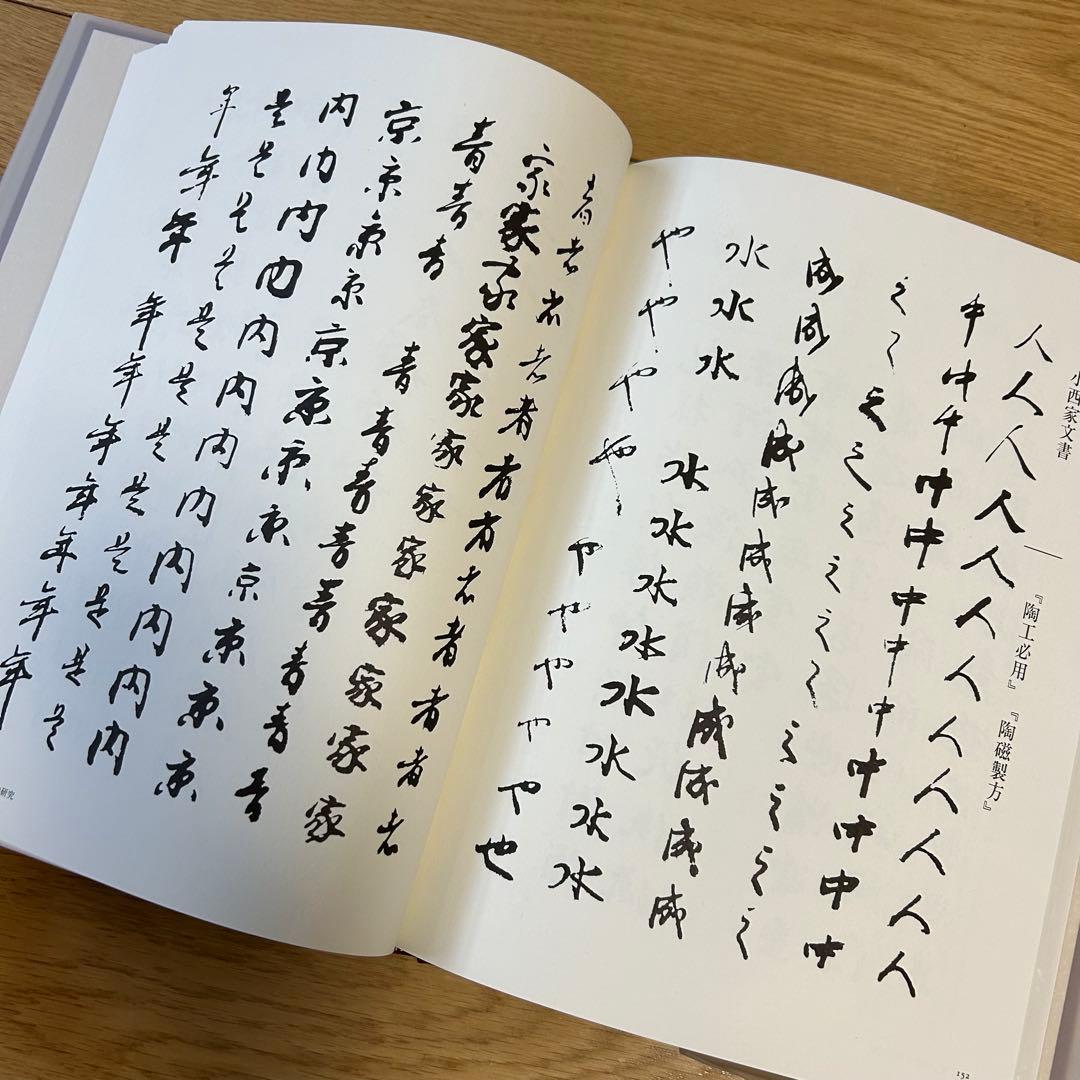 小西家文書 — 『陶工必用』『陶磁製方』
人人人人人人人人人人人人
中中中中中中中中中中中中
之之之之之之之之之之之之之
威威威威威威威威威威威威
水水水水水水水水水水水
也也也也也也也也也也
152
者者者者者者者者者者者者
家家家家家家家家家家家家
青青青青青青青青青青青
京京京京京京京京京京京京
内内内内内内内内内内内内
是是是是是是是是是是是是
年年年年年年年年年年
研究